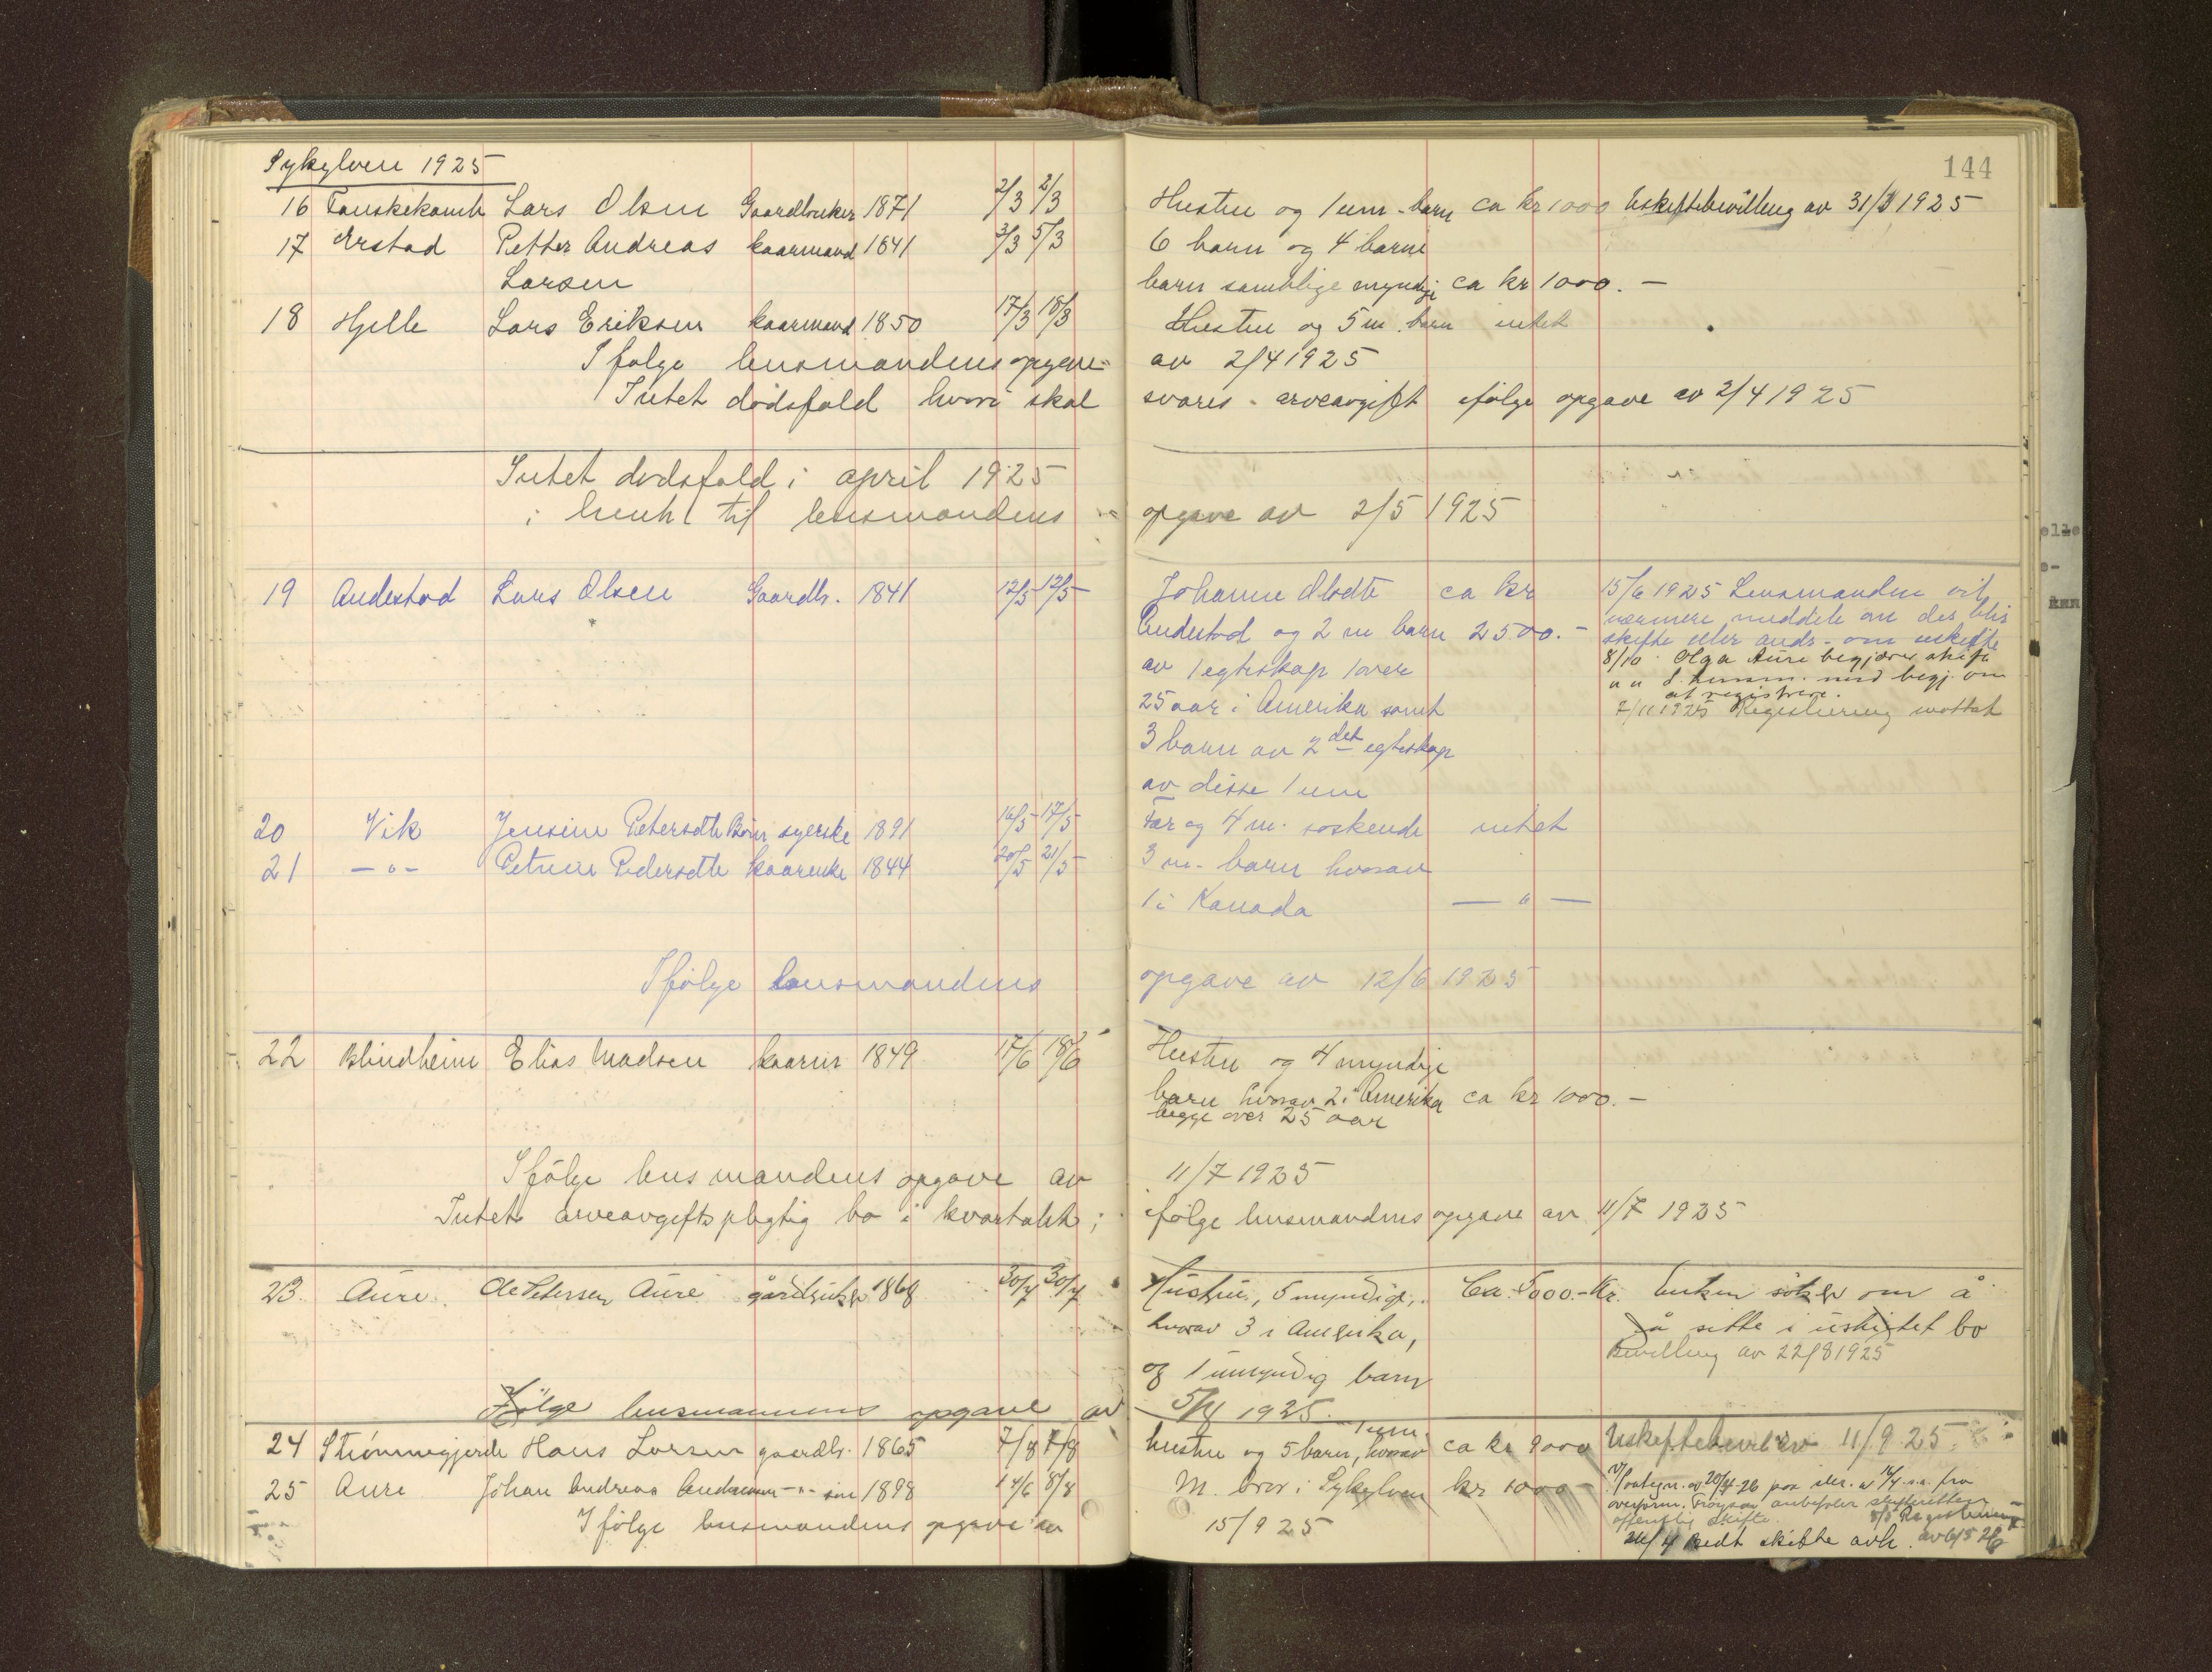 144
Sykylven 1925
16 Lars Olsen Gaardbruker 1871 2/3 2/3 Hustru og 1 um. barn ca kr 1000 Uskiftebevilling av 31/3 1925
17 Erstad Petter Andreas kaarmand 1841 3/3 5/3 6 barn og 4 barne
Larsen barn samtlige myndige ca kr 1000.-
18 Hjelle Lars Eriksen kaarmand 1850 17/3 18/3 Hustru og 5 m. barn intet
Ifølge lensmandens opgave av 2/4 1925
Intet dödsfald hvori skal svares arveavgift ifølge opgave av 2/4 1925
Intet dødsfald i april 1925
i henh. til lensmandens opgave av 2/5 1925
19 Andestad Lars Olsen Gaardb. 1841 12/5 12/5 Johanne Olsdtr ca kr 15/6 1925 Lensmanden vil
Andestad og 2 m barn 2500.- nærmere meddele om der blir
skifte eller ands. om uskifte
av 1 egteskap 1 over 8/10 Olga Aure begjærer skifte
" " S. lensm. med begj. om
at registrere.
25 aar i Amerika samt 7/11 1925 Registrering mottat
3 barn av 2det egteskap
av disse 1 um
20 Vik Jensine Petersdtr syerske 1891 16/5 17/5 Far og 4 m. søskende intet
21 -"- Petrine Pedersdtr kaarenke 1844 20/5 21/5 3 m. barn hvorav
1 i Kanada -"-
Ifølge lensmandens opgave av 12/6 1925
22 Blindheim Elias Madsen kaarm 1849 17/6 18/6 Hustru og 4 myndige
barn hvorav 2 i Amerika ca kr 1000.-
begge over 25 aar
Ifölge lensmandens opgave av 11/7 1925
Intet arveavgiftspligtig bo i kvartalet; ifølge lensmandens opgave av 11/7 1925
23. Aure. Ole Petersen Aure gårdbruker 1868 30/7 30/7 Hustru, 5 myndige, Ca. 5000.- Kr. Enken söker om å
hvorav 3 i Amerika, å sitte i uskiftet bo
Bevilling av 22/8 1925
og 1 umyndig barn
Ifølge lensmannens opgave av 5/8 1925.
24 Strømmegjerde Hans Larsen gaardb. 1865 7/8 7/8 hustru og 5 barn, hvorav 1 um. ca kr 9000 Uskiftebevil av 11/9 25
25 Aure Johan Andreas -"- søn 1898 14/6 8/8 M. bror i Sykylven kr 1000 - fra
overform. anbefaler skifteretten
offentlig skifte. 8/5 Registrering
Ifölge lensmandens opgave av 15/9 25 24/4 Bedt skifte avh. av 6/5 26
elle
e-